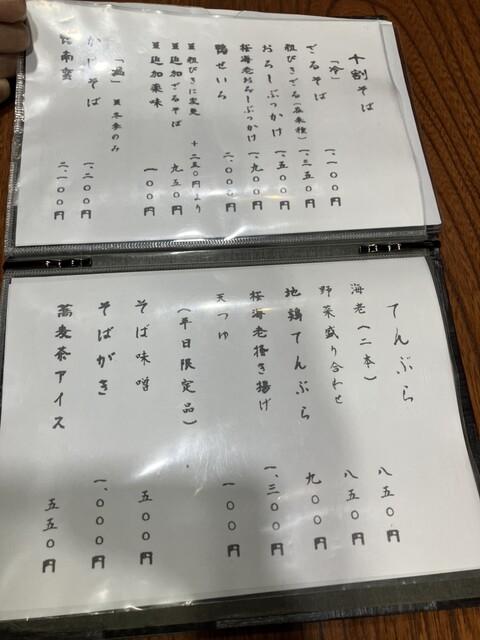 十割そば
「冷」
ざるそば 一、一〇〇円
粗びきざる(在来種) 一、三五〇円
おろしぶっかけ 一、五〇〇円
桜海老おろしぶっかけ 一、九〇〇円
鴨せいろ 二、〇〇〇円
※粗びきに変更 +二五〇円より
※追加ざるそば 九五〇円
※追加薬味 一〇〇円
「温」 ※冬季のみ
かけそば 一、二〇〇円
鴨南蛮 二、一〇〇円
てんぷら
海老(二本) 八五〇円
野菜盛り合わせ 八五〇円
地鶏てんぷら 九〇〇円
桜海老掻き揚げ 一、三〇〇円
天つゆ 一〇〇円
(平日限定品)
そば味噌 五〇〇円
そばがき 一、〇〇〇円
蕎麦茶アイス 五五〇円